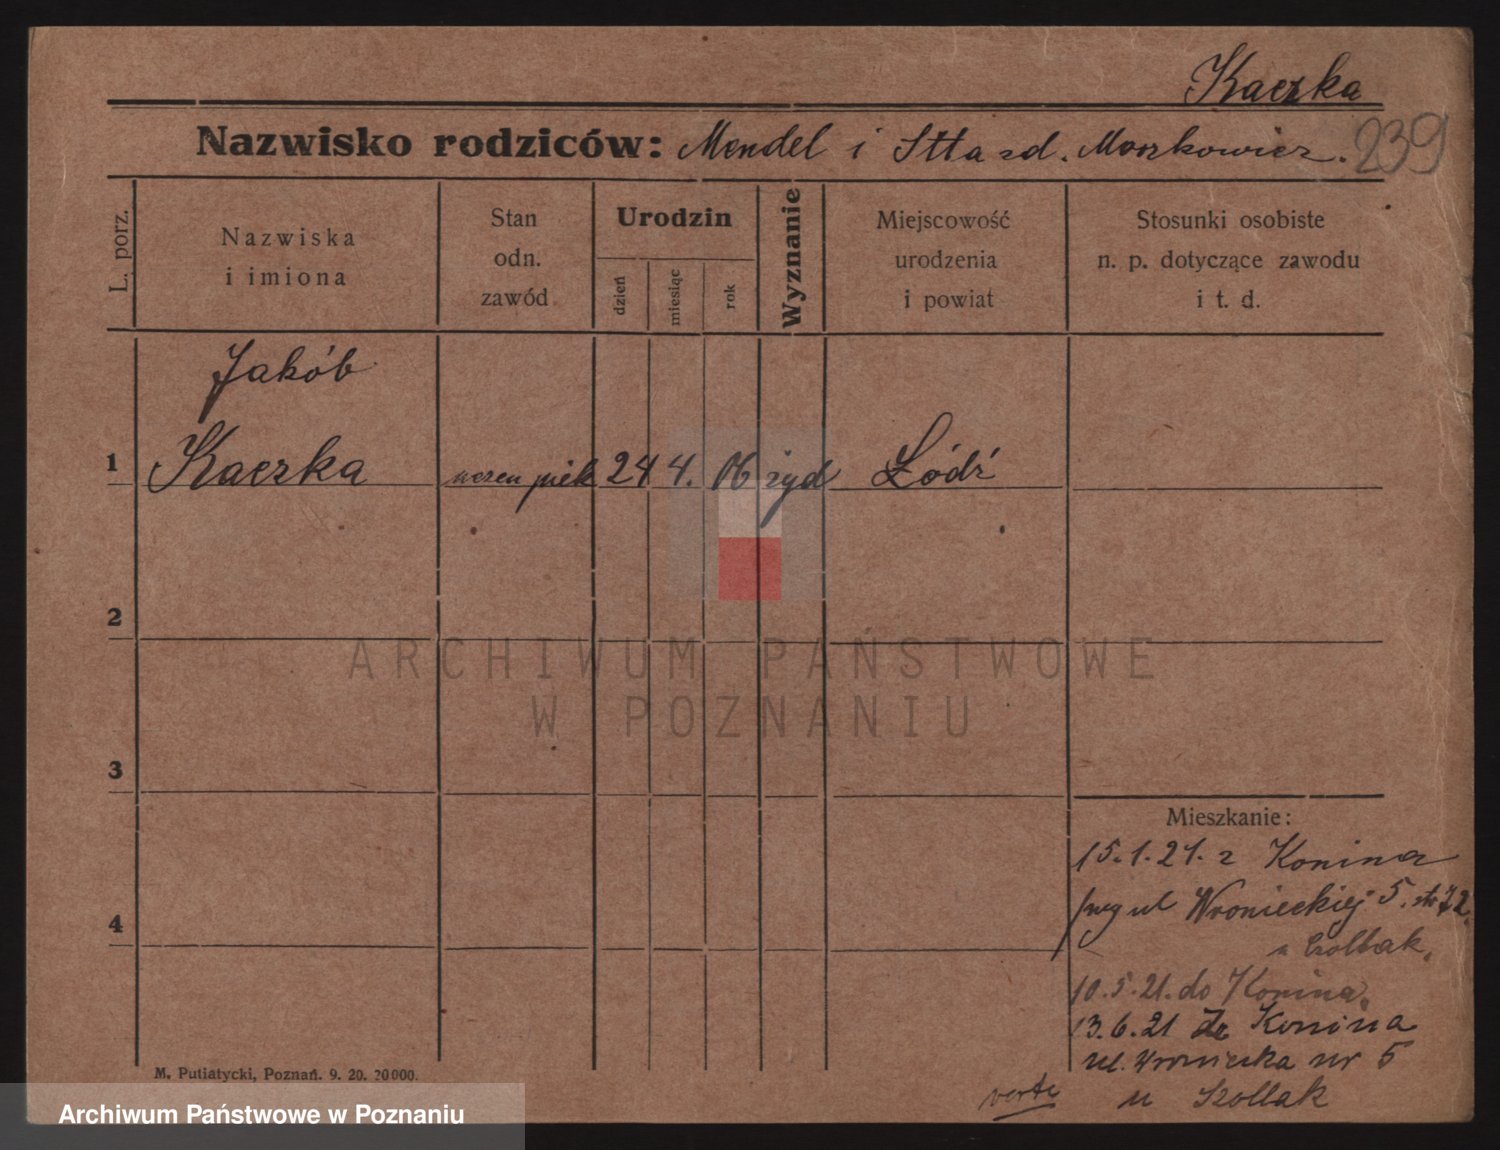 Kaczka
Nazwisko rodziców: Mendel i Itta zd. Moszkowicz.
239
L. porz.
Nazwiska
i imiona
Stan
odn.
zawód
Urodzin
dzień
miesiąc
rok
Wyznanie
Miejscowość
urodzenia
i powiat
Stosunki osobiste
n. p. dotyczące zawodu
i t. d.
Jakób
1 Kaczka uczeń piek 24 4. 06 żyd Łódź
2
ARCHIWUM PAŃSTWOWE
W POZNANIU
3
Mieszkanie:
15.1.21. z Konina
ul Wronieckiej 5.
4
10.5.21. do Konina.
13.6.21 Ze Konina
ul. Wroniecka nr 5
u Szollak
verte
M. Putiatycki, Poznań. 9. 20. 20000.
Archiwum Państwowe w Poznaniu